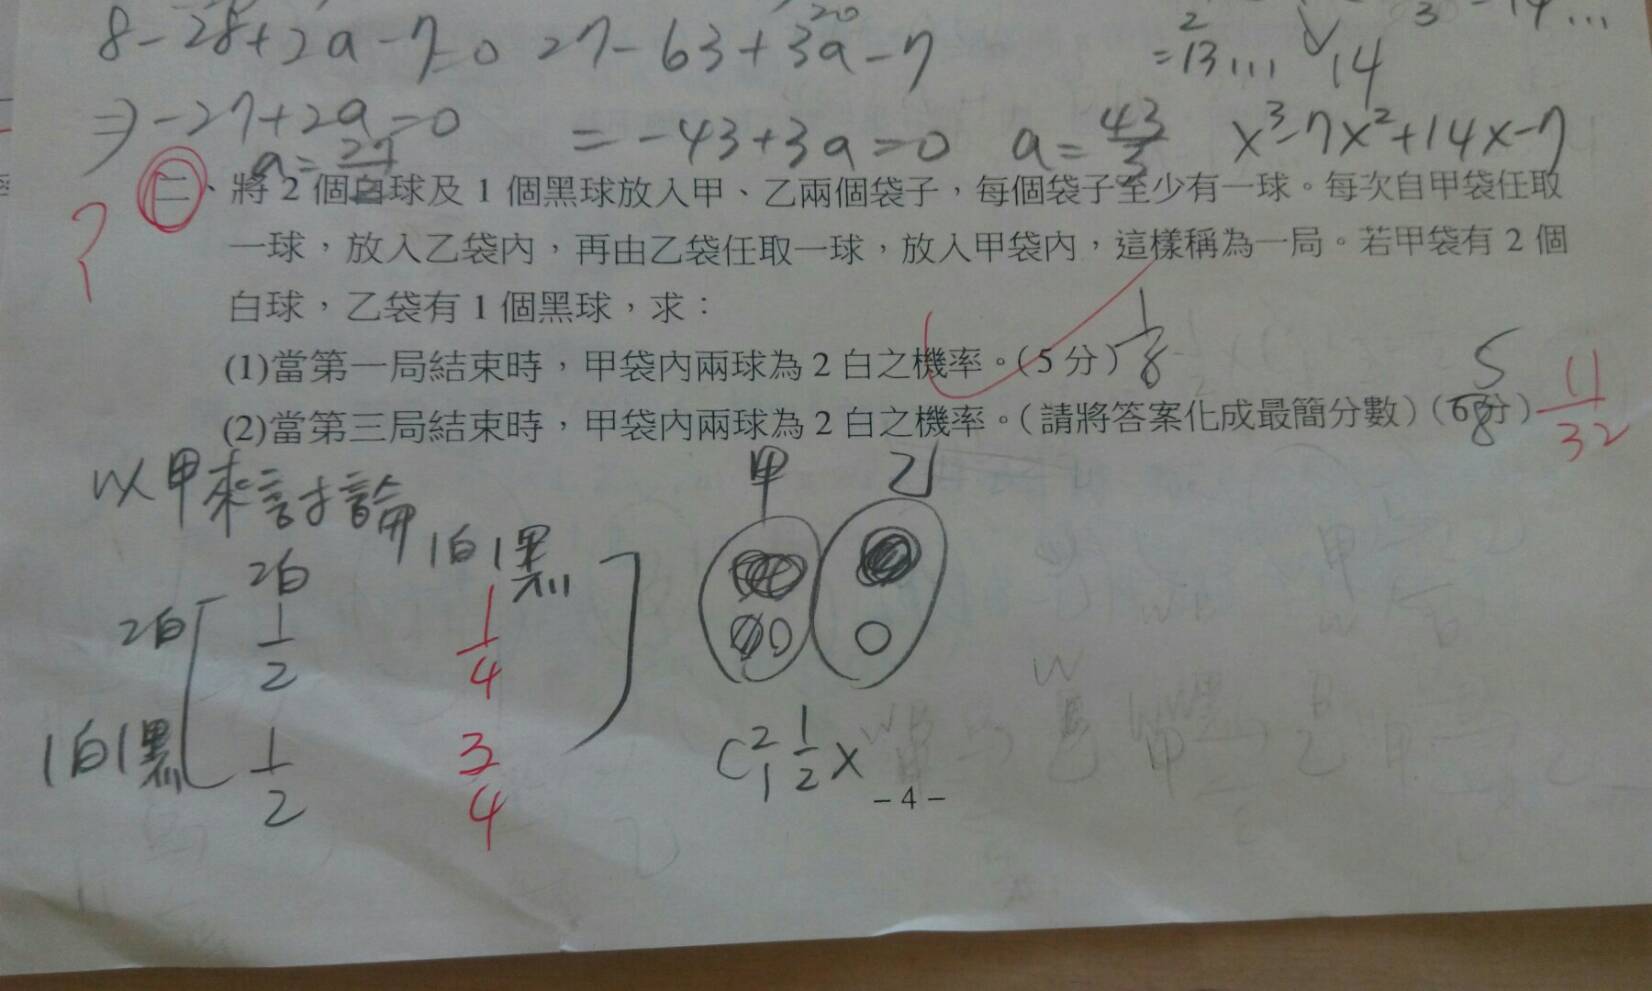 8-28+2a-7=0 27-63+3a-7
20
2
=13... 14
3 -14...
⇒-27+2a=0 =-43+3a=0 a=43/3 x³-7x²+14x-7
a=27/2
?
二、將2個白球及1個黑球放入甲、乙兩個袋子,每個袋子至少有一球。每次自甲袋任取
一球,放入乙袋內,再由乙袋任取一球,放入甲袋內,這樣稱為一局。若甲袋有2個
白球,乙袋有1個黑球,求:
(1)當第一局結束時,甲袋內兩球為2白之機率。(5分) 1/8
(2)當第三局結束時,甲袋內兩球為2白之機率。(請將答案化成最簡分數)(6分) 5/8 11/32
以甲來討論
甲 乙
2白 1白1黑
2白 1/2 1/4
1白1黑 1/2 3/4
C²₁ 1/2 x
-4-